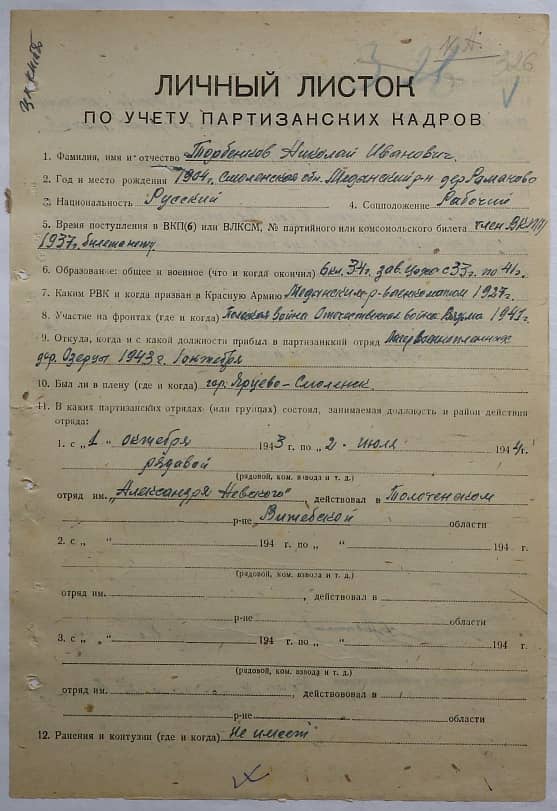 326
ЛИЧНЫЙ ЛИСТОК
ПО УЧЕТУ ПАРТИЗАНСКИХ КАДРОВ
1. Фамилия, имя и отчество Торбенков Николай Иванович.
2. Год и место рождения 1904г. Смоленская обл. Медынский р-н дер. Романово
3. Национальность Русский 4. Соцположение Рабочий
5. Время поступления в ВКП(б) или ВЛКСМ, № партийного или комсомольского билета член ВКП(б)
1937г. билета
6. Образование: общее и военное (что и когда окончил) 6 кл. 34г. зав. с 33г. по 41г.
7. Каким РВК и когда призван в Красную Армию Медынским р-военкоматом 1927г.
8. Участие на фронтах (где и когда) война Отечественная война Вязьма 1941г.
9. Откуда, когда и с какой должности прибыл в партизанкий отряд Лагерь военнопленных
дер. Озерцы 1943г. 1 октября
10. Был ли в плену (где и когда) гор. Ярцево-Смоленск.
11. В каких партизанских отрядах (или группах) состоял, занимаемая должность и район действия
отряда:
1. с „1 " октября 1943 г. по „2 - июля 1944г.
рядовой
(рядовой, ком. взвода и т. д.)
отряд им. „Александра Невского", действовал в Толоченском
р-не Витебской области
2. с „ " 194 г. по „ " 194 г.
(рядовой, ком. взвода и т. д.)
отряд им. , действовал в
р-не области
3. с „ " 194 г. по „ " 194 г.
(рядовой, ком. взвода и т. д.)
отряд им. , действововал в
р-не области
12. Ранения и контузии (где и когда) Не имеет